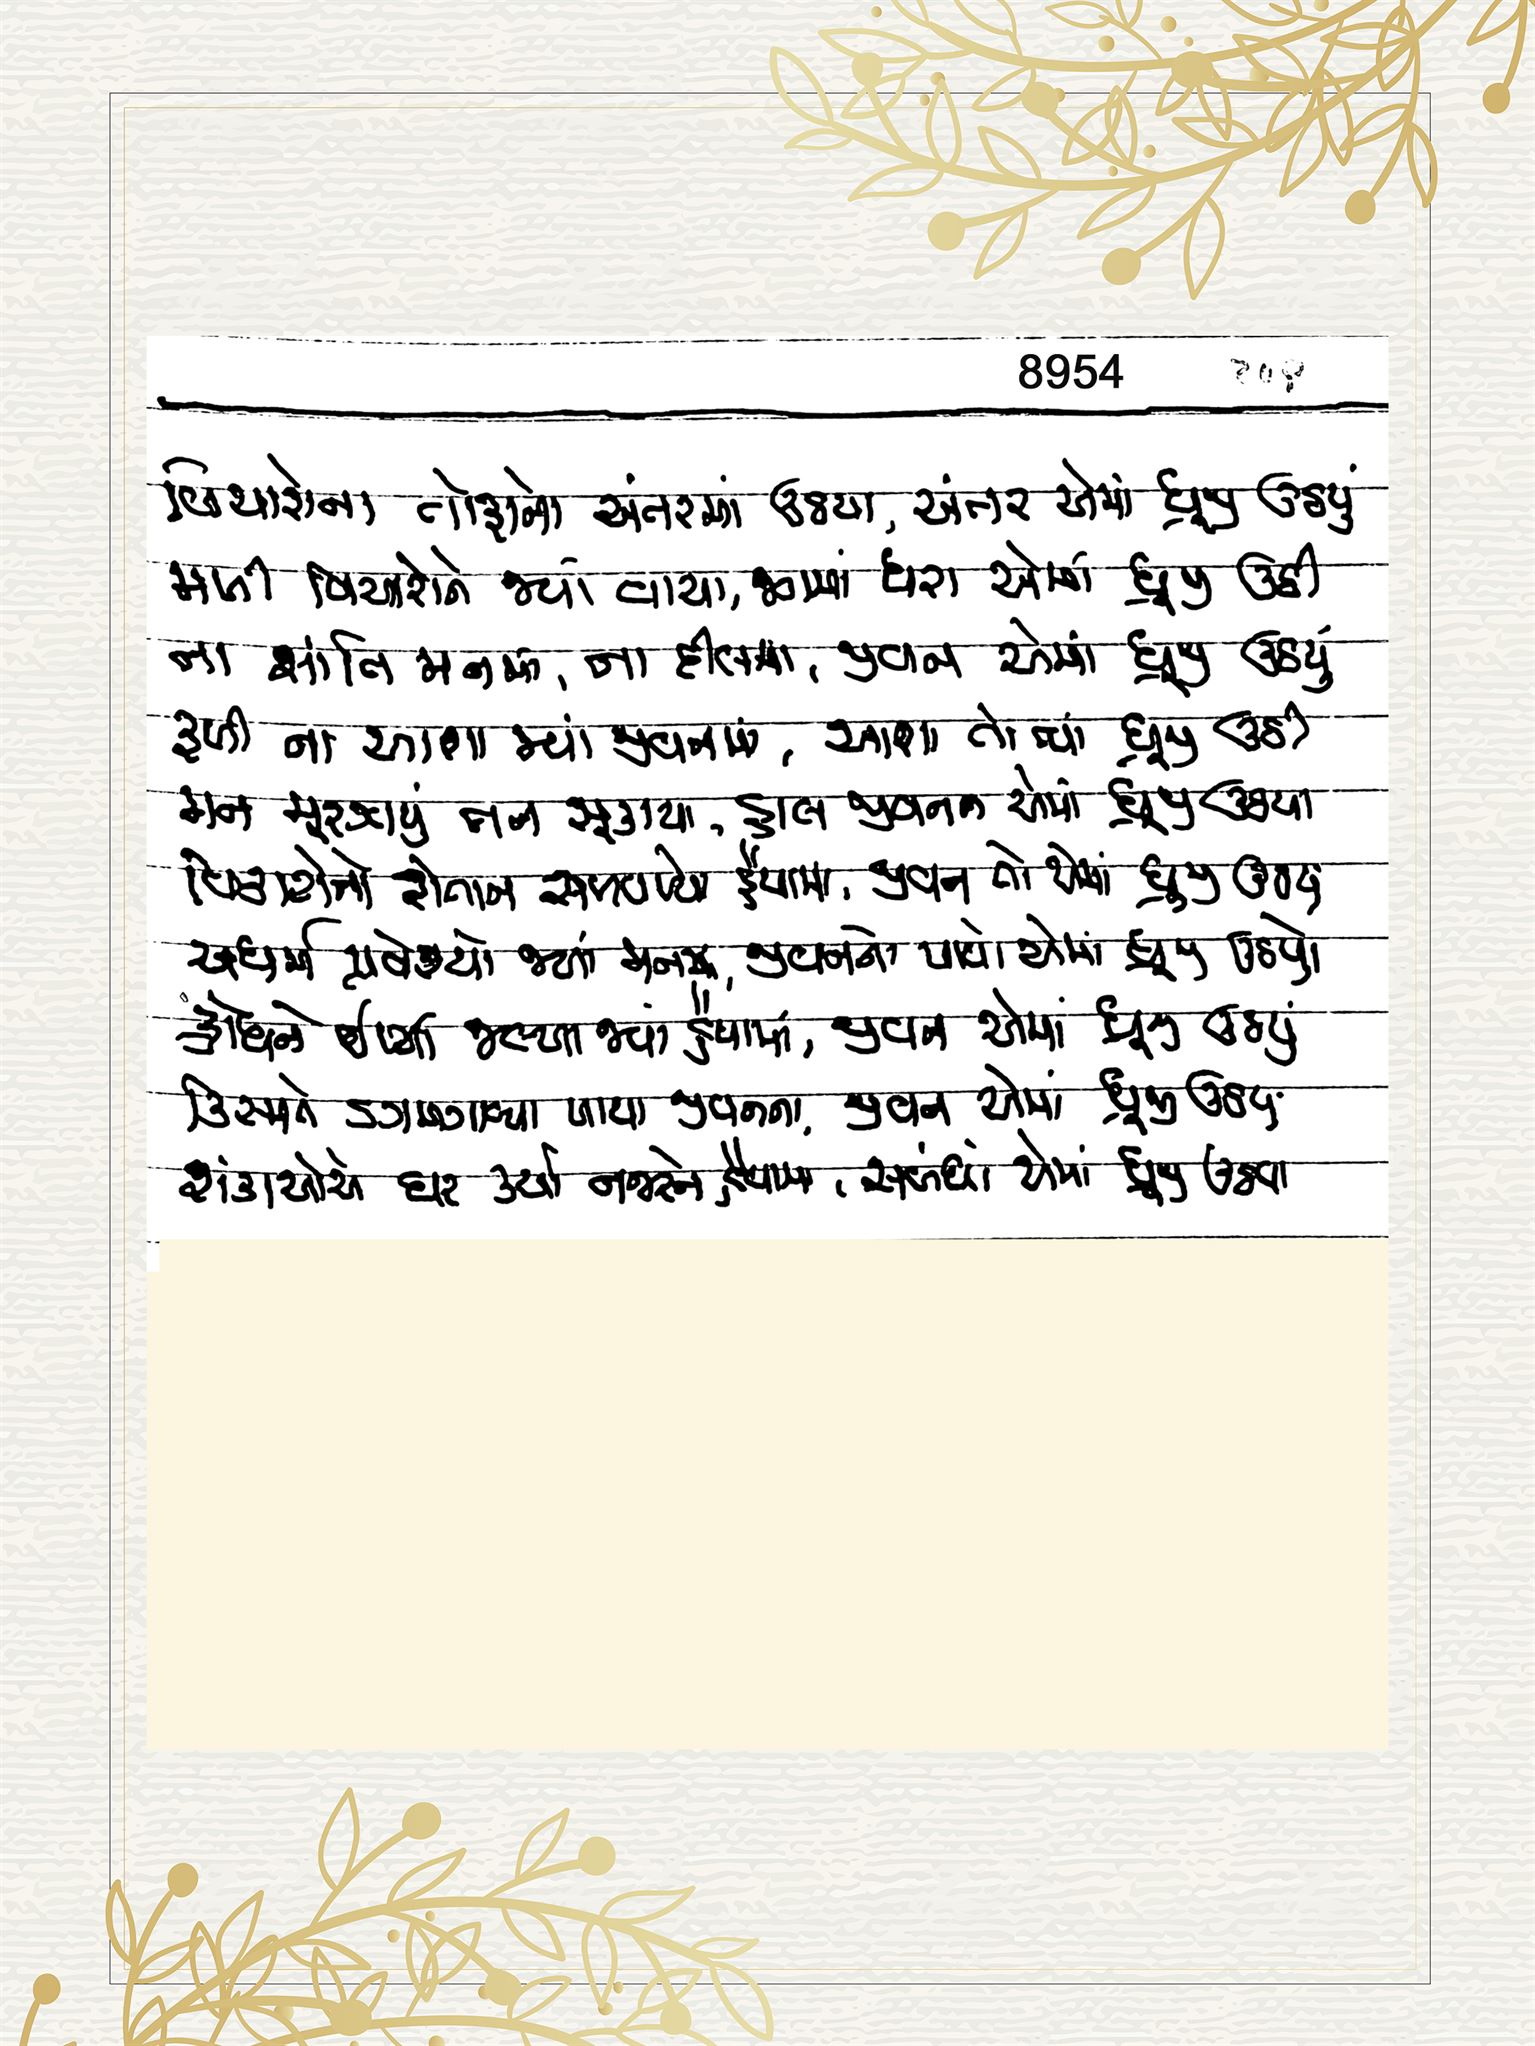 8954
વિચારોના તોફાનો અંતરમાં ઉઠયા, અંતર એમાં ધ્રૂજી ઉઠયું
મળી વિચારોને જ્યાં વાચા, ધરા એમાં ધ્રૂજી ઉઠી
ના શાંતિ મનમાં, ના દીલમાં, જીવન એમાં ધ્રૂજી ઉઠયું
ફળી ના આશા જ્યાં જીવનમાં, આશા તો ત્યાં ધ્રૂજી ઉઠી
મન મૂરઝાયું તન સૂકાયા, હાલ જીવનના એમાં ધ્રૂજી ઉઠયા
વિકારોનો શેતાન હૈયામાં, જીવન તો એમાં ધ્રૂજી ઉઠયું
અધર્મ પ્રવેશ્યો જ્યાં મનમાં, જીવનનો પાયો એમાં ધ્રૂજી ઉઠયો
ક્રોધને ઈર્ષ્યા જલ્યા જ્યાં હૈયામાં, જીવન એમાં ધ્રૂજી ઉઠયું
કિસ્મતે ડગમગાવ્યા પાયા જીવનના, જીવન એમાં ધ્રૂજી ઉઠયું
શંકાઓએ ઘર કર્યા હૈયામાં, સબંધો એમાં ધ્રૂજી ઉઠયા